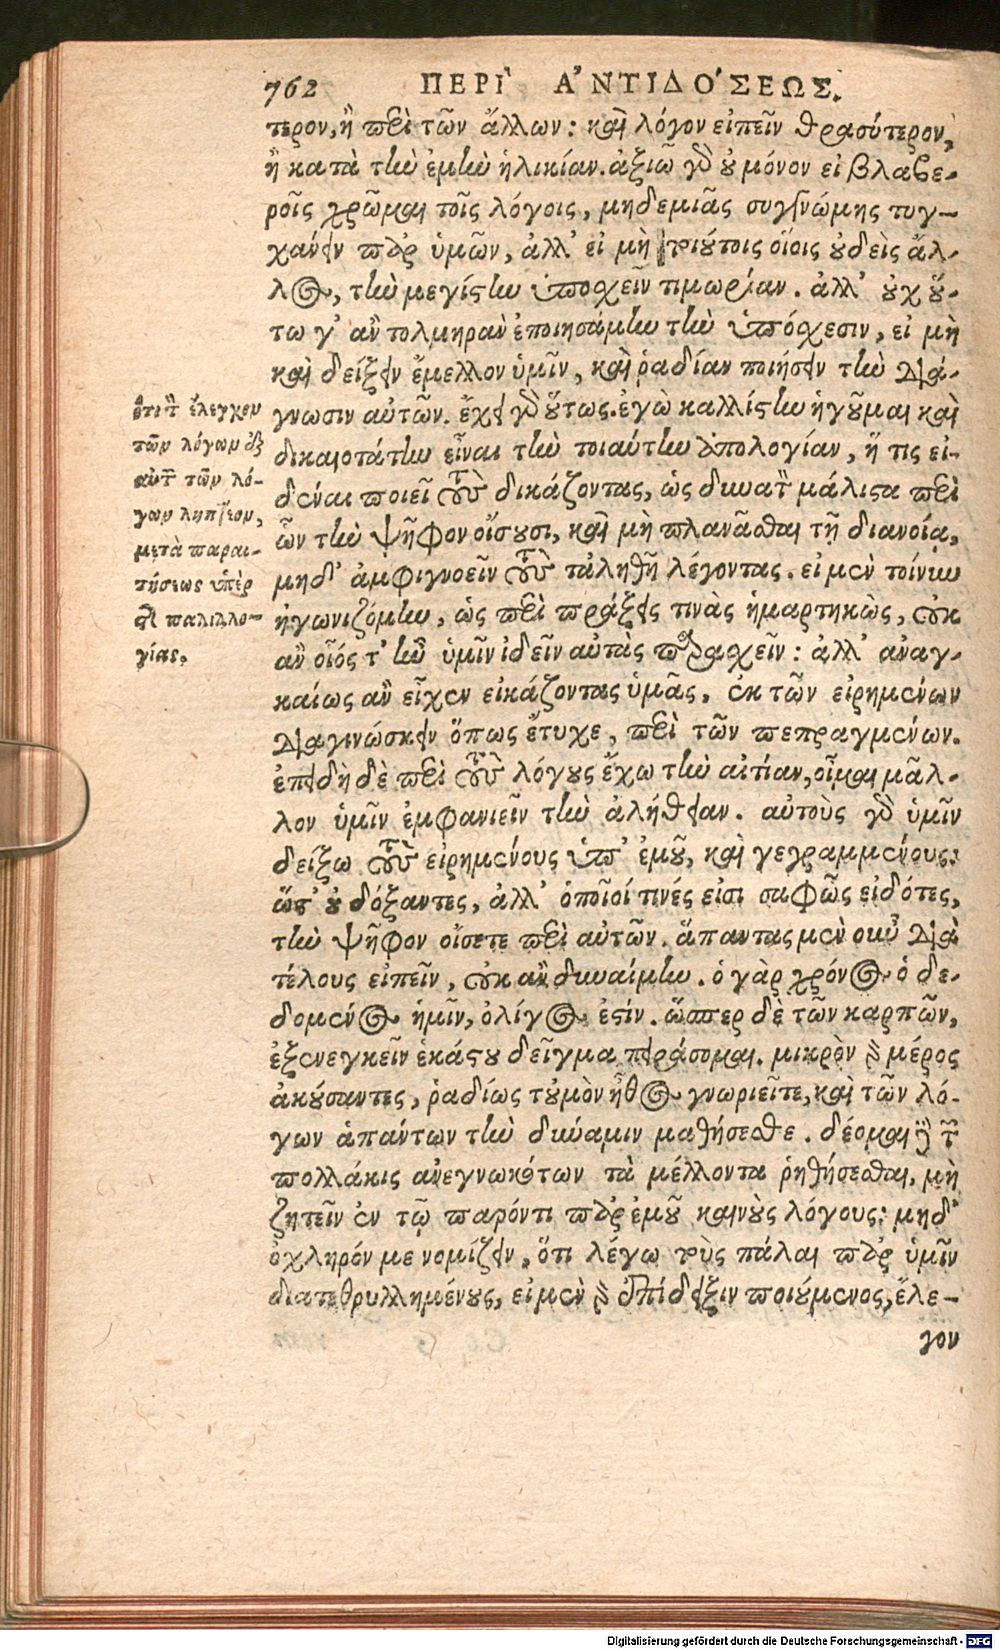 762 ΠΕΡΙ` Α'ΝΤΙΔΟ'ΣΕΩΣ.
τερον, ἢ περὶ τῶν ἄλλων: καὶ λόγον εἰπεῖν θρασύτερον,
ἢ κατὰ τὴν ἐμὴν ἡλικίαν. ἀξιῶ γὸ οὐ μόνον εἰ βλαβε-
ροῖς χρῶμαι τοῖς λόγοις, μηδεμιᾶς συγγνώμης τυγ-
χάνειν παρ' ὑμῶν, ἀλλ' εἰ μὴ τοιούτοις οἵοις οὐδεὶς ἄλ-
λος, τὴν μεγίστην ὑποσχεῖν τιμωρίαν. ἀλλ' οὐχ οὕ-
τω γ' ἂν τολμηρὰν ἐποιησάμην τὴν ὑπόσχεσιν, εἰ μὴ
καὶ δείξειν ἔμελλον ὑμῖν, καὶ ῥαδίαν ποιήσειν τὴν διά-
γνωσιν αὐτῶν. ἔχει γὸ οὕτως. ἐγὼ καλλίστην ἡγοῦμαι καὶ
δικαιοτάτην εἶναι τὴν τοιαύτην ἀπολογίαν, ἥ τις εἰ-
δέναι ποιεῖ τοὺς δικάζοντας, ὡς δυνατὸν μάλιστα περὶ
ὧν τὴν ψῆφον οἴσουσι, καὶ μὴ πλανᾶσθαι τῇ διανοίᾳ,
μηδ' ἀμφιγνοεῖν τοὺς τἀληθῆ λέγοντας. εἰ μὲν τοίνυν
ἠγωνιζόμην, ὡς περὶ πράξεις τινὰς ἡμαρτηκὼς, οὐκ
ἂν οἷός τ' ἦν ὑμῖν ἰδεῖν αὐτὰς παρασχεῖν: ἀλλ' ἀναγ-
καίως ἂν εἶχεν εἰκάζοντας ὑμᾶς, ἐκ τῶν εἰρημένων
διαγινώσκειν ὅπως ἔτυχε, περὶ τῶν πεπραγμένων.
ἐπειδὴ δὲ περὶ τοὺς λόγους ἔχω τὴν αἰτίαν, οἶμαι μᾶλ-
λον ὑμῖν ἐμφανιεῖν τὴν ἀλήθειαν. αὐτοὺς γὸ ὑμῖν
δείξω τοὺς εἰρημένους ὑπ' ἐμοῦ, καὶ γεγραμμένους:
ὥστ' οὐ δόξαντες, ἀλλ' ὁποῖοί τινές εἰσι σαφῶς εἰδότες,
τὴν ψῆφον οἴσετε περὶ αὐτῶν. ἅπαντας μὲν οὖν διὰ
τέλους εἰπεῖν, οὐκ ἂν δυναίμην. ὁ γὰρ χρόνος ὁ δε-
δομένος ἡμῖν, ὀλίγος ἐστίν. ὥσπερ δὲ τῶν καρπῶν,
ἐξενεγκεῖν ἑκάστου δεῖγμα πειράσομαι. μικρὸν δὲ μέρος
ἀκούσαντες, ῥαδίως τοὐμὸν ἦθος γνωριεῖτε, καὶ τῶν λό-
γων ἁπάντων τὴν δύναμιν μαθήσεσθε. δέομαι δὲ τῶν
πολλάκις ἀνεγνωκότων τὰ μέλλοντα ῥηθήσεσθαι, μὴ
ζητεῖν ἐν τῷ παρόντι παρ' ἐμοῦ καινοὺς λόγους: μηδ'
ὀχληρόν με νομίζειν, ὅτι λέγω τοὺς πάλαι παρ' ὑμῖν
διατεθρυλλημένους, εἰ μὲν γὸ ἐπίδειξιν ποιούμενος, ἔλε-
γον
ὅτι τὸν ἔλεγχον
τῶν λόγων ἐξ
αὐτῶν τῶν λό-
γων ληπτέον,
μετὰ παραι-
τήσεως ὑπὲρ
τῆς παλιλλο-
γίας.
Digitalisierung gefördert durch die Deutsche Forschungsgemeinschaft - DFG